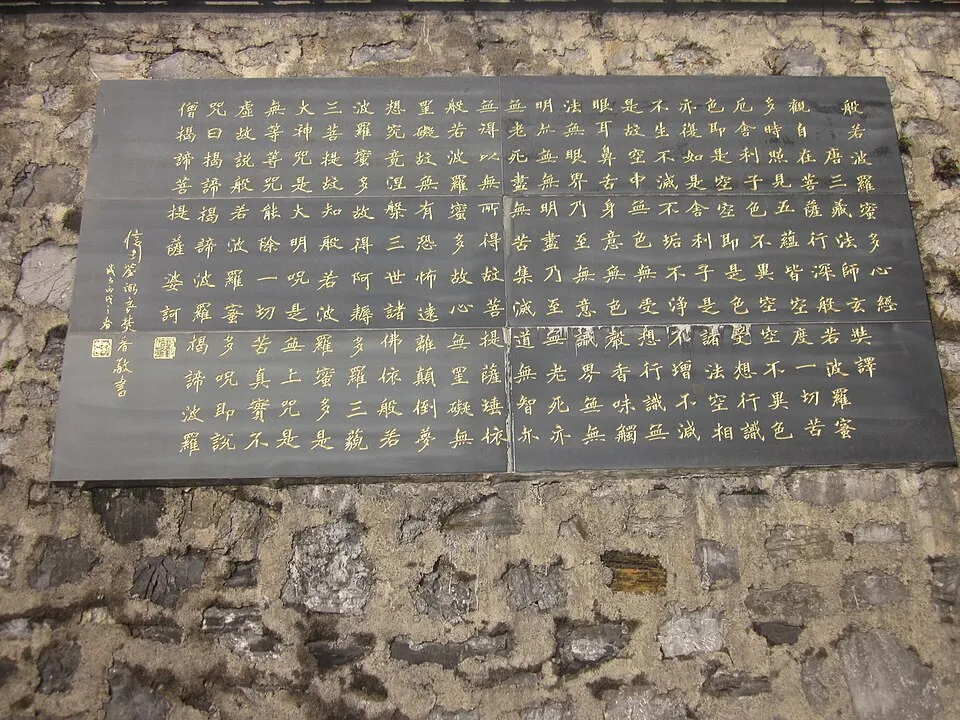 般若波羅蜜多心經
唐三藏法師玄奘譯
觀自在菩薩行深般若波羅蜜
多時照見五蘊皆空度一切苦
厄舍利子色不異空空不異色
色即是空空即是色受想行識
亦復如是舍利子是諸法空相
不生不滅不垢不淨不增不減
是故空中無色無受想行識無
眼耳鼻舌身意無色聲香味觸
法無眼界乃至無意識界無無
明亦無無明盡乃至無老死亦
無老死盡無苦集滅道無智亦
無得以無所得故菩提薩埵依
般若波羅蜜多故心無罣礙無
罣礙故無有恐怖遠離顛倒夢
想究竟涅槃三世諸佛依般若
波羅蜜多故得阿耨多羅三藐
三菩提故知般若波羅蜜多是
大神咒是大明咒是無上咒是
無等等咒能除一切苦真實不
虛故說般若波羅蜜多咒即說
咒曰揭諦揭諦波羅揭諦波羅
僧揭諦菩提薩婆訶
敬書